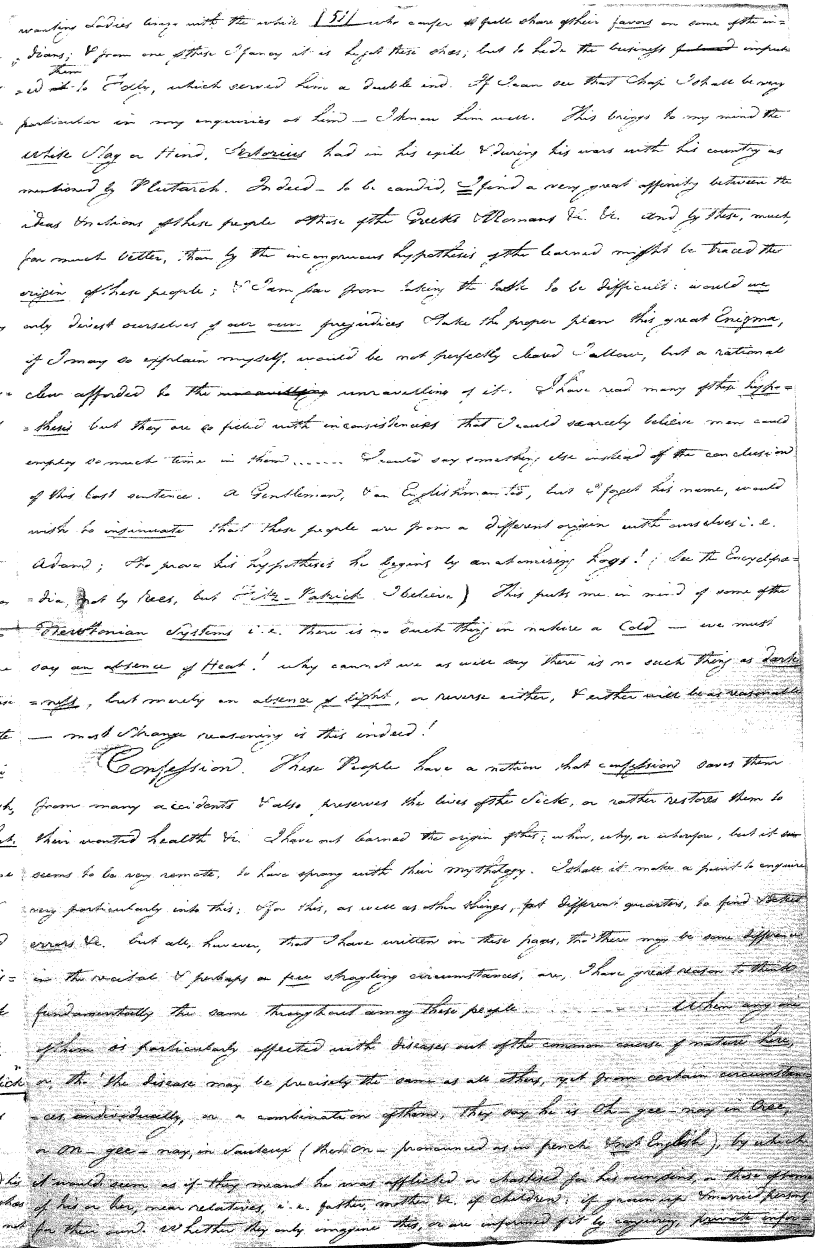 wanting Ladies large with the white [51] who confer a full share of their favors on some of the in=
=dians; & from one of these I fancy it is he got these shoes; but to hide the business imput
=ed them to Folly, which served him a double end. If I can see that Chap I shall be very
particular in my enquiries at him — I know him well. This brings to my mind the
White Stag or Hind, Sertorius had in his exile & during his wars with his country as
mentioned by Plutarch. Indeed — to be candid, I find a very great affinity between the
ideas & notions of these people & those of the Greeks & Romans &c. &c. and by these, much,
far much better, than by the incongruous hypothesis of the learned might be traced the
origin of these people; & I am far from taking the task to be difficult: would we
only divest ourselves of our own prejudices & take the proper plan this great Enigma,
if I may so explain myself, would be not perfectly cleared I allow, but a rational
clew afforded to the unravelling of it. I have read many of these hypo=
=thesis but they are so filled with inconsistencies that I could scarcely believe men could
employ so much time in them...... I could say something else instead of the conclusion
of this last sentence. A Gentleman, & an Englishman too, but I forget his name, would
wish to insinuate that these people are from a different origin with ourselves i.e.
Adam; & to prove his hypothesis he begins by anatomising hogs! (See the Encyclopæ=
=dia, not by Rees, but Fitz-Patrick I believe) This puts me in mind of some of the
Newtonian Systems i.e. there is no such thing in nature a Cold — we must
say an absence of Heat! why cannot we as well say there is no such thing as dark
=ness, but merely an absence of light, or reverse either, & either will be as reasonable
— most strange reasoning is this indeed!
Confession. These People have a notion that confession saves them
from many accidents & also preserves the lives of the Sick, or rather restores them to
their wonted health &c. I have not learned the origin of this; when, why, or wherefore, but it
seems to be very remote, to have sprung with their mythology. I shall it make a point to enquire
very particularly into this; & for this, as well as other things, at different quarters, to find & detect
errors &c. but all, however, that I have written in these pages, tho' there may be some difference
in the recital & perhaps a few straggling circumstances, are, I have great reason to think
fundamentally the same throughout among these people .......... When any one
of them is particularly affected with diseases out of the common course of nature here,
or, tho' the disease may be precisely the same as all others, yet from certain circumstan-
-ces individually, or a combination of them, they say he is Oh-gee-nay in Cree,
or On-gee-nay, in Sauteux (the on- pronounced as in french & not English), by which
it would seem as if they meant he was afflicted or chastised for his own sins, or those
of his or her, near relatives, i.e. father, mother &c. if children; if grown up & married persons
for their own. Whether they only imagine this, or are informed of it by conjuring, private infor=